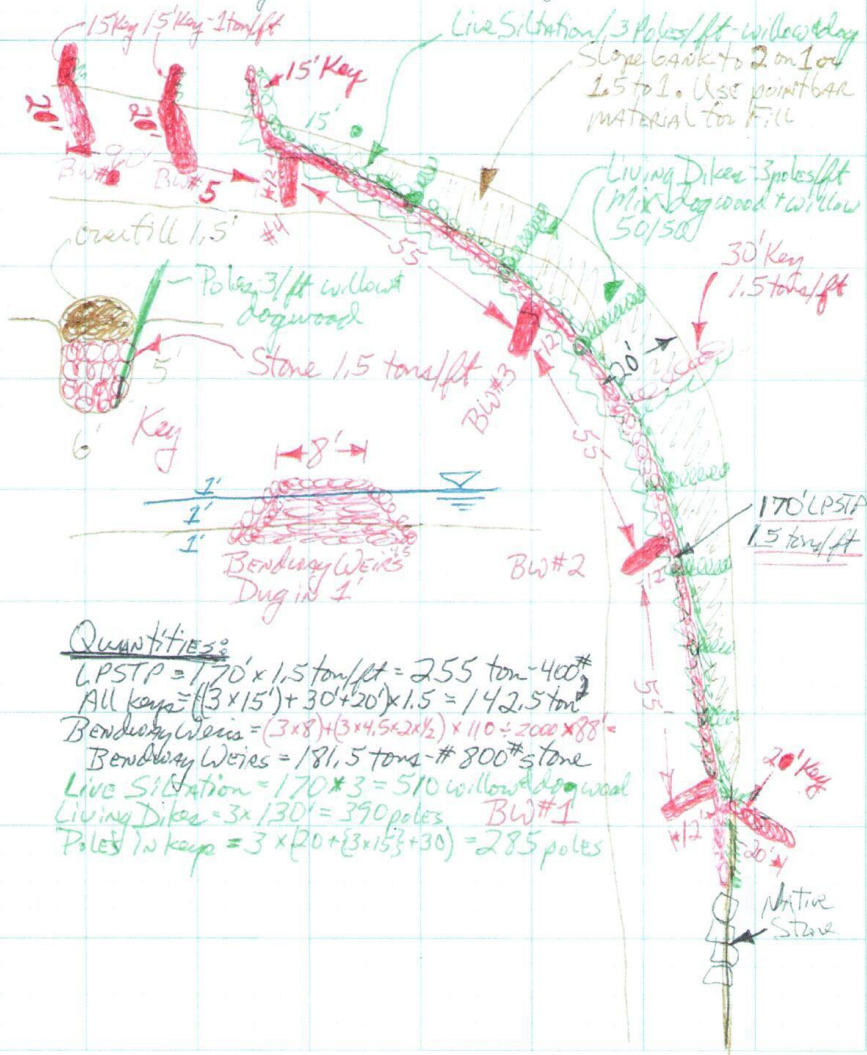 15 Key
15' Key - 1 ton/ft
15' Key
Live Siltation, 3 Poles/ft - willow & dog
Slope bank to 2 on 1 or
1.5 to 1. Use point bar
material for Fill
15'
20'
20'
90'
BW#
BW#5
#4
H12
Living Dikes - 3 poles/ft
Mix dogwood + willow
50/50
30' Key
1.5 tons/ft
overfill 1.5'
Poles 3/ft willow &
dogwood
Stone 1.5 tons/ft
5'
6'
Key
55
BW#3
12'
20'
55'
8'
1'
1'
1'
Bendway Weirs
Dug in 1'
BW#2
12'
170' LPSTP
1.5 ton/ft
55'
Quantities:
LPSTP = 170' x 1.5 ton/ft = 255 ton - 400#
All keys = ((3 x 15') + 30' + 20') x 1.5 = 142.5 ton
Bendway Weirs = (3x8)+(3x4.5x2x½) x 110 ÷ 2000 x 88' =
Bendway Weirs = 181.5 tons - # 800# stone
Live Siltation = 170 x 3 = 510 willow & dogwood
Living Dikes = 3 x 130' = 390 poles
Poles in keys = 3 x (20 + (3x15) + 30) = 285 poles
BW#1
12'
20' Key
20'
Native
Stone